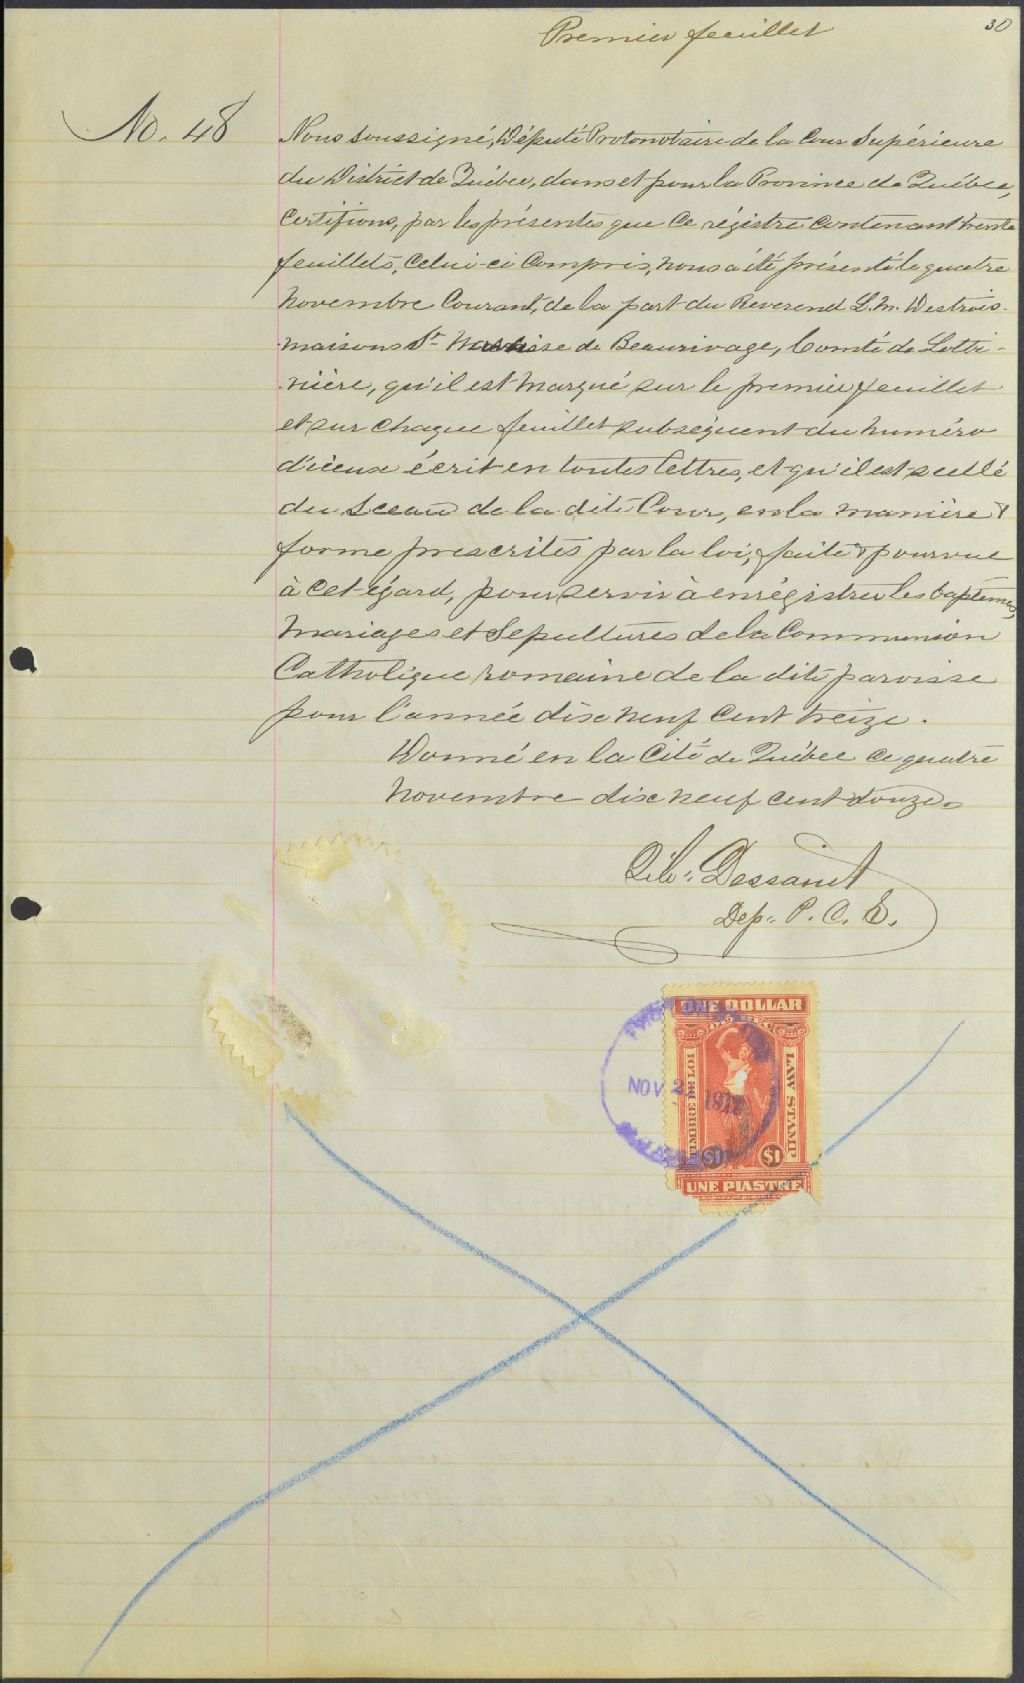 Premier feuillet
30
No. 48
Nous soussigné, Député Protonotaire de la Cour Supérieure
du District de Québec, dans et pour la Province de Québec,
Certifions, par les présentes que ce régistre contenant trente
feuillets, celui-ci compris, nous a été présenté le quatre
novembre courant, de la part du Reverend L. M. Destrois-
-maisons St- Narcisse de Beaurivage, Comté de Lotbi-
-nière, qu'il est marqué sur le premier feuillet
et sur chaque feuillet subséquent du numéro
d'iceux écrit en toutes lettres, et qu'il est scellé
du sceau de la dite Cour, en la manière &
forme prescrites par la loi, faite & pourvue
à cet égard, pour servir à enrégistrer les baptêmes,
mariages et Sepultures de la Communion
Catholique romaine de la dite paroisse
pour l'année dix neuf cent treize.
Donné en la Cité de Québec ce quatre
novembre dix neuf cent douze.
Dep. P. C. S.
ONE DOLLAR
TIMBRE DE LOI
LAW STAMP
NOV 2
$1 $1
UNE PIASTRE